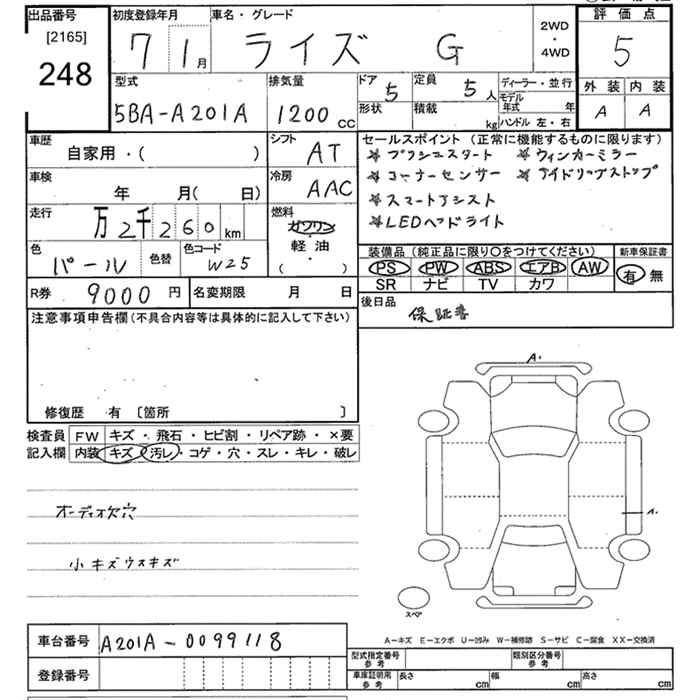 出品番号 初度登録年月 車名・グレード 2WD・4WD 評価点
[2165]
248 7 1月 ライズ G 5
型式 排気量 ドア 定員 ディーラー・並行 外装 内装
5BA-A201A 1200cc 5 5人 モデル年式 年 A A
形状 積載 kg ハンドル 左・右
車歴 シフト セールスポイント (正常に機能するものに限ります)
自家用・( ) AT ★プッシュスタート ★ウィンカーミラー
車検 冷房 ★コーナーセンサー ★アイドリングストップ
年 月( 日) AAC ★スマートアシスト
走行 燃料 ★LEDヘッドライト
万2千260km ガソリン
軽油
( )
色 色替 色コード 装備品 (純正品に限り○をつけてください) 新車保証書
パール W25 PS PW ABS エアB AW 有 無
SR ナビ TV カワ
R券 9000円 名変期限 月 日 後日品
保証書
注意事項申告欄 (不具合内容等は具体的に記入して下さい)
修復歴 有 〔箇所 〕
検査員 FW キズ・飛石・ヒビ割・リペア跡・×要
記入欄 内装 キズ・汚レ・コゲ・穴・スレ・キレ・破レ
A・
A・
オーディオ欠穴
小キズウスキズ
スペア
A−キズ E−エクボ U−凹み W−補修跡 S−サビ C−腐食 XX−交換済
車台番号 A201A-0099118
型式指定番号 参考 類別区分番号 参考
登録番号 車庫証明用 参考 長さ cm 幅 cm 高さ cm